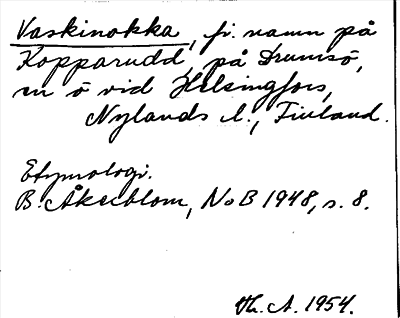 Vaskinokka, fi. namn på
Kopparudd, på Drumsö,
en ö vid Helsingfors,
Nylands l., Finland.
Etymologi.
B. Åkerblom, NoB 1948, s. 8.
Th. A. 1954.